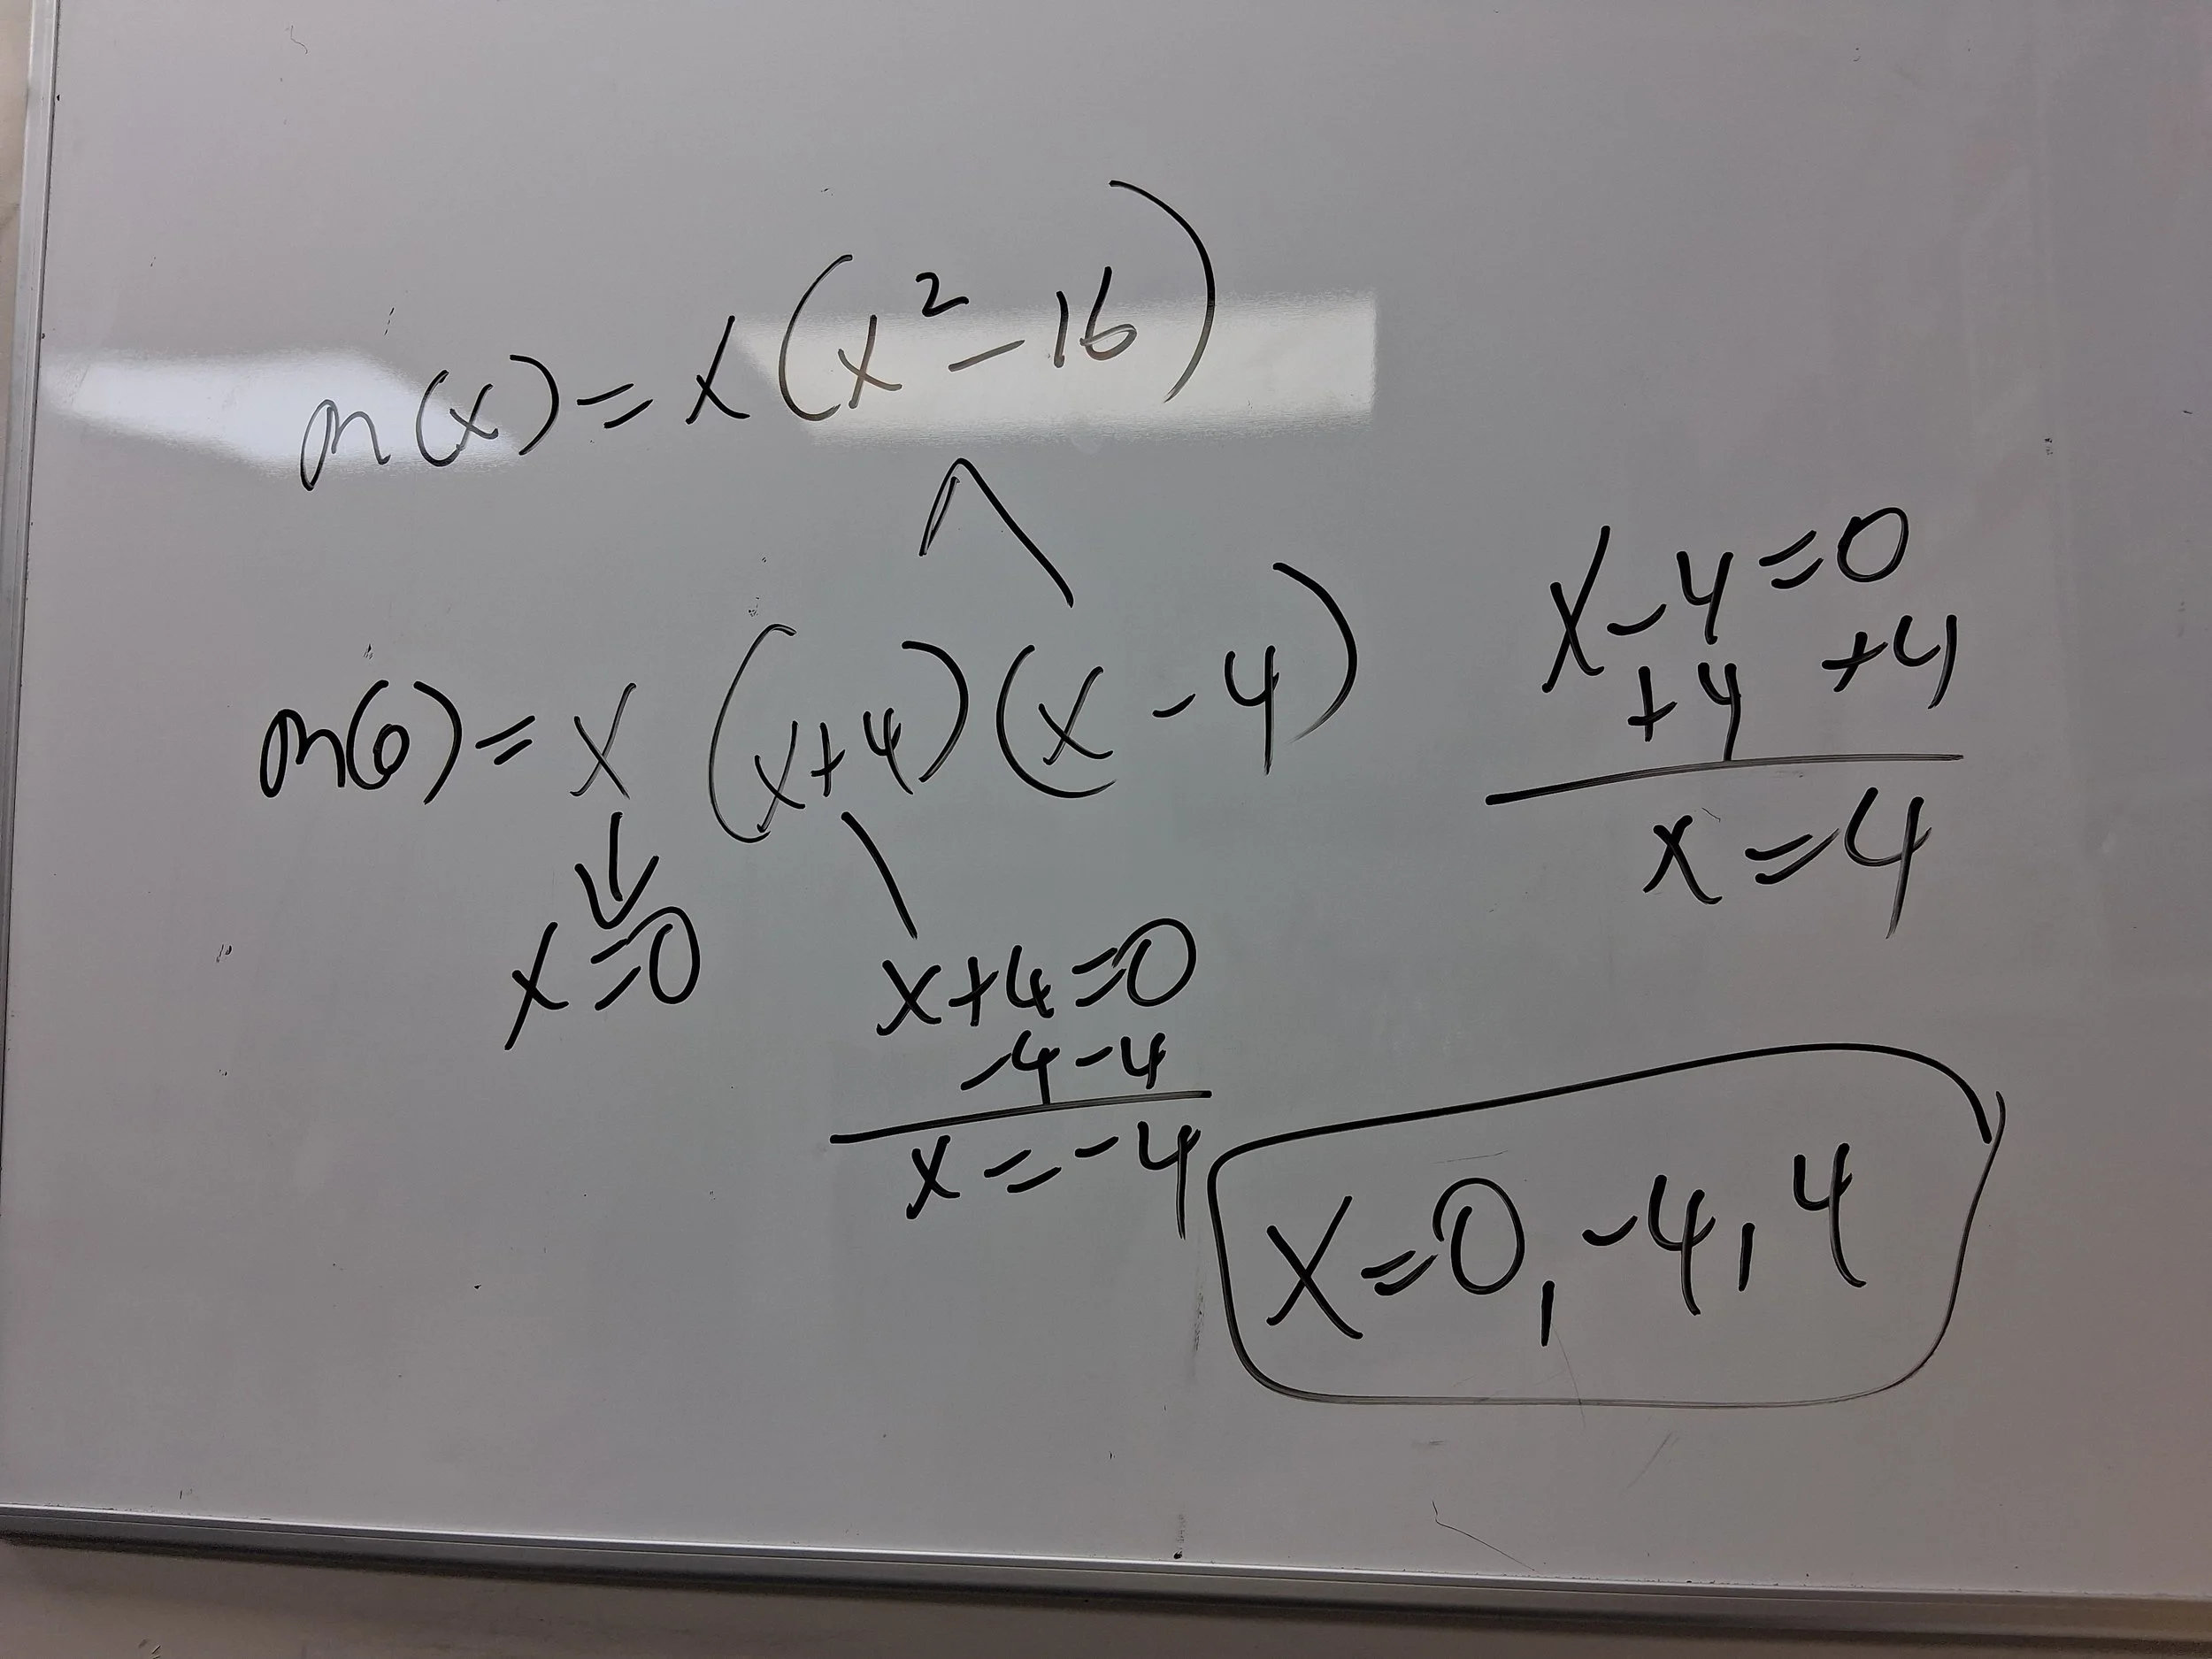 m(x) = x(x² - 16)
m(0) = x (x+4)(x - 4)
x = 0
x+4 = 0
-4 -4
x = -4
x - 4 = 0
+4 +4
x = 4
x = 0, -4, 4